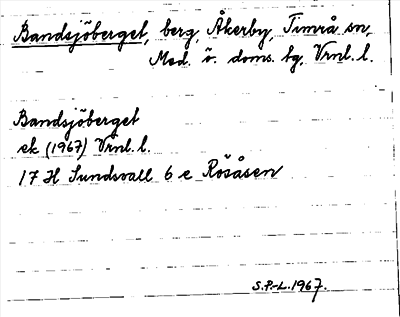 Bandsjöberget, berg, Åkerby, Timrå sn,
Med. ö. doms. tg, Vrnl. l.
Bandsjöberget
ek (1967) Vrnl. l.
17 H Sundsvall 6 e Rösåsen
S.P.-L. 1967.